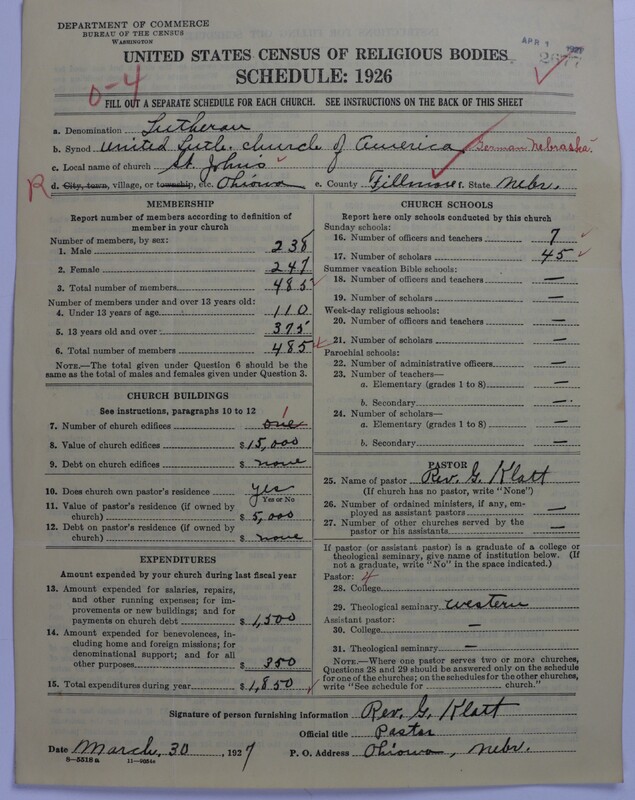 DEPARTMENT OF COMMERCE
BUREAU OF THE CENSUS
WASHINGTON
APR 1 1927
2677
UNITED STATES CENSUS OF RELIGIOUS BODIES
SCHEDULE: 1926
0-4
FILL OUT A SEPARATE SCHEDULE FOR EACH CHURCH. SEE INSTRUCTIONS ON THE BACK OF THIS SHEET
a. Denomination Lutheran
b. Synod United Luth. church of America German Nebraska
c. Local name of church St. John's
R d. City, town, village, or township, etc. Ohiowa e. County Fillmore f. State Nebr.
MEMBERSHIP
Report number of members according to definition of member in your church
Number of members, by sex:
1. Male 238
2. Female 247
3. Total number of members 485
Number of members under and over 13 years old:
4. Under 13 years of age 110
5. 13 years old and over 375
6. Total number of members 485
NOTE.—The total given under Question 6 should be the
same as the total of males and females given under Question 3.
CHURCH BUILDINGS
See instructions, paragraphs 10 to 12
7. Number of church edifices one 1
8. Value of church edifices $ 15,000
9. Debt on church edifices $ none
10. Does church own pastor's residence yes
Yes or No
11. Value of pastor's residence (if owned by
church) $ 5,000
12. Debt on pastor's residence (if owned by
church) $ none
EXPENDITURES
Amount expended by your church during last fiscal year
13. Amount expended for salaries, repairs,
and other running expenses; for im-
provements or new buildings; and for
payments on church debt $ 1,500
14. Amount expended for benevolences, in-
cluding home and foreign missions; for
denominational support; and for all
other purposes $ 350
15. Total expenditures during year $ 1,850
CHURCH SCHOOLS
Report here only schools conducted by this church
Sunday schools:
16. Number of officers and teachers 7
17. Number of scholars 45
Summer vacation Bible schools:
18. Number of officers and teachers —
19. Number of scholars —
Week-day religious schools:
20. Number of officers and teachers —
21. Number of scholars —
Parochial schools:
22. Number of administrative officers —
23. Number of teachers—
a. Elementary (grades 1 to 8) —
b. Secondary —
24. Number of scholars—
a. Elementary (grades 1 to 8) —
b. Secondary —
PASTOR
25. Name of pastor Rev. G. Klatt
(If church has no pastor, write "None")
26. Number of ordained ministers, if any, em-
ployed as assistant pastors —
27. Number of other churches served by the
pastor or his assistants —
If pastor (or assistant pastor) is a graduate of a college or
theological seminary, give name of institution below. (If
not a graduate, write "No" in the space indicated.)
Pastor: 4
28. College
29. Theological seminary western
Assistant pastor:
30. College —
31. Theological seminary —
NOTE.—Where one pastor serves two or more churches,
Questions 28 and 29 should be answered only on the schedule
for one of the churches; on the schedules for the other churches,
write "See schedule for church."
Signature of person furnishing information Rev. G. Klatt
Official title Pastor
Date March, 30, 1927 P. O. Address Ohiowa, Nebr.
8—5518 a 11—9024c